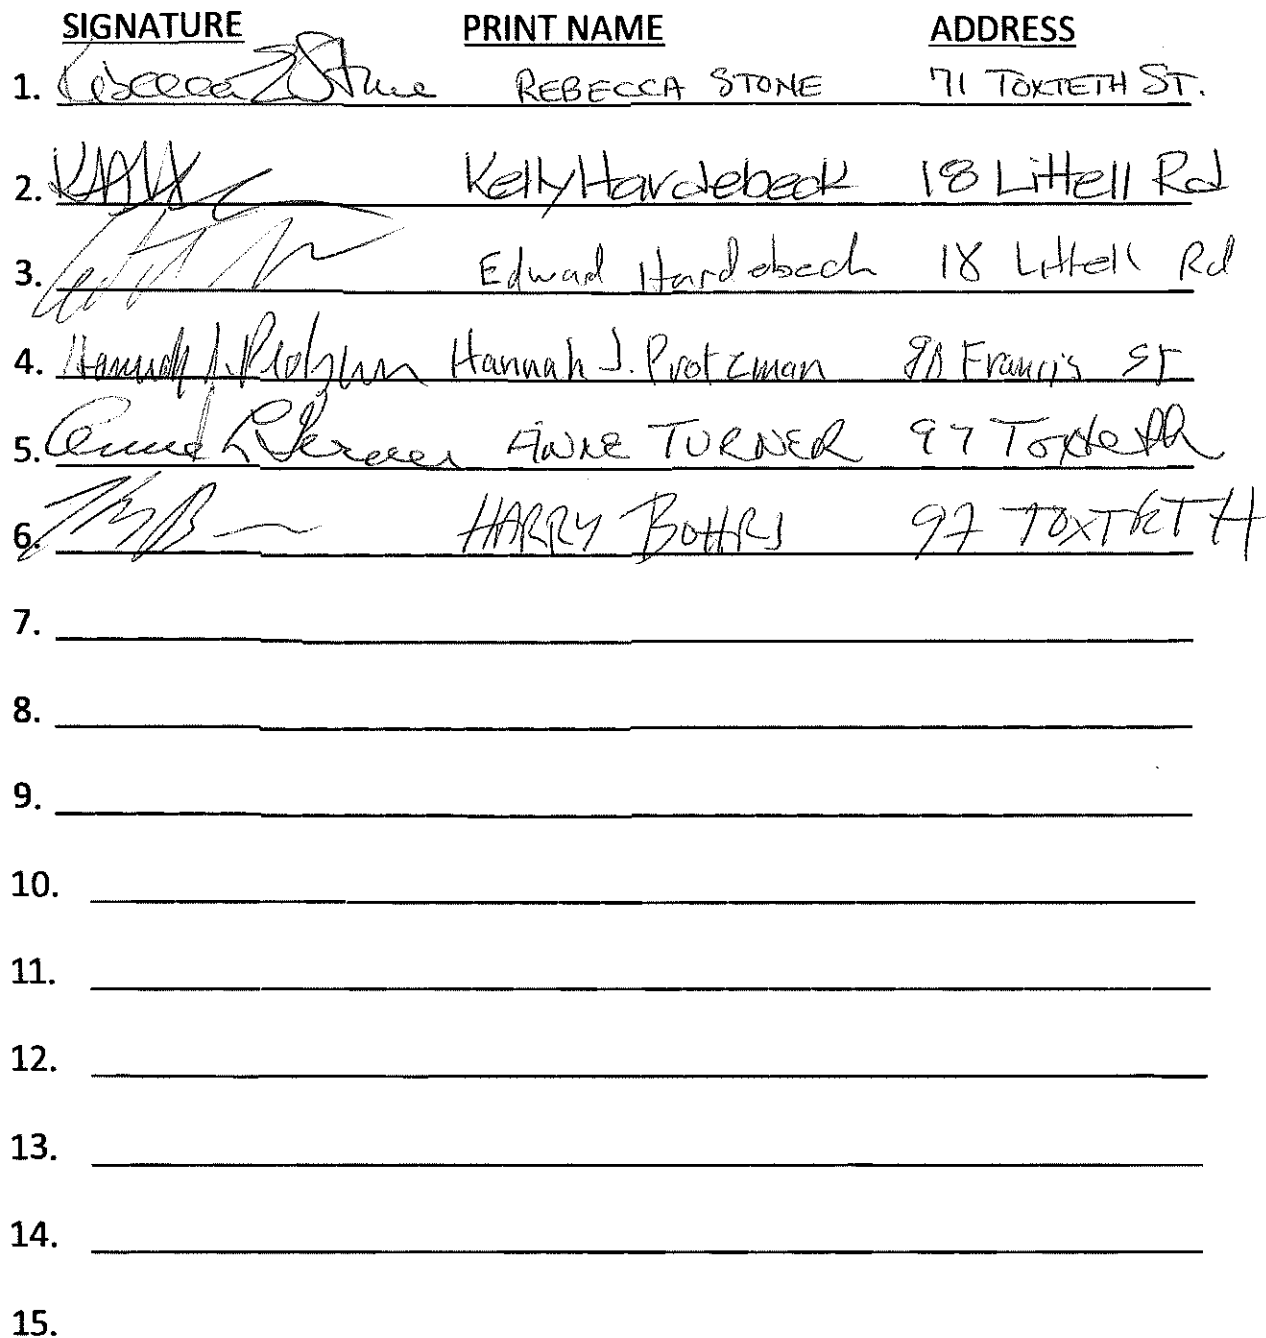 SIGNATURE PRINT NAME ADDRESS
1. Rebecca E Stone REBECCA STONE 71 TOXTETH ST.
2. Kelly Hardebeck 18 Littell Rd
3. Edward Hardebeck 18 Littell Rd
4. Hannah J. Protzman Hannah J. Protzman Francis St
5. Anne L Turner ANNE TURNER 97 Toxteth
6. HARRY BOHRS 97 TOXTETH
7.
8.
9.
10.
11.
12.
13.
14.
15.